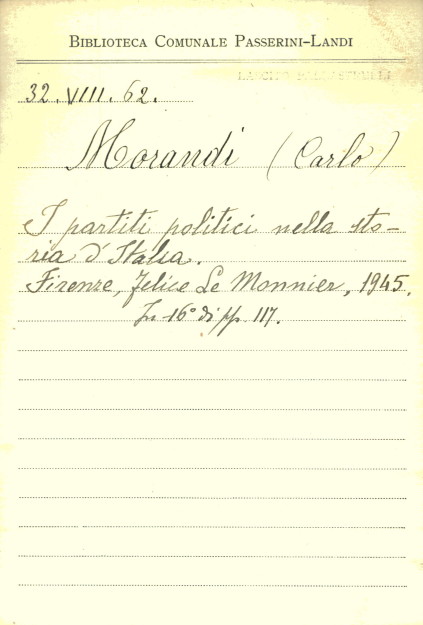 BIBLIOTECA COMUNALE PASSERINI-LANDI
32. VIII. 62.
Morandi (Carlo)
I partiti politici nella sto-
ria d'Italia.
Firenze, Felice Le Monnier, 1945.
In 16° di pp 117.